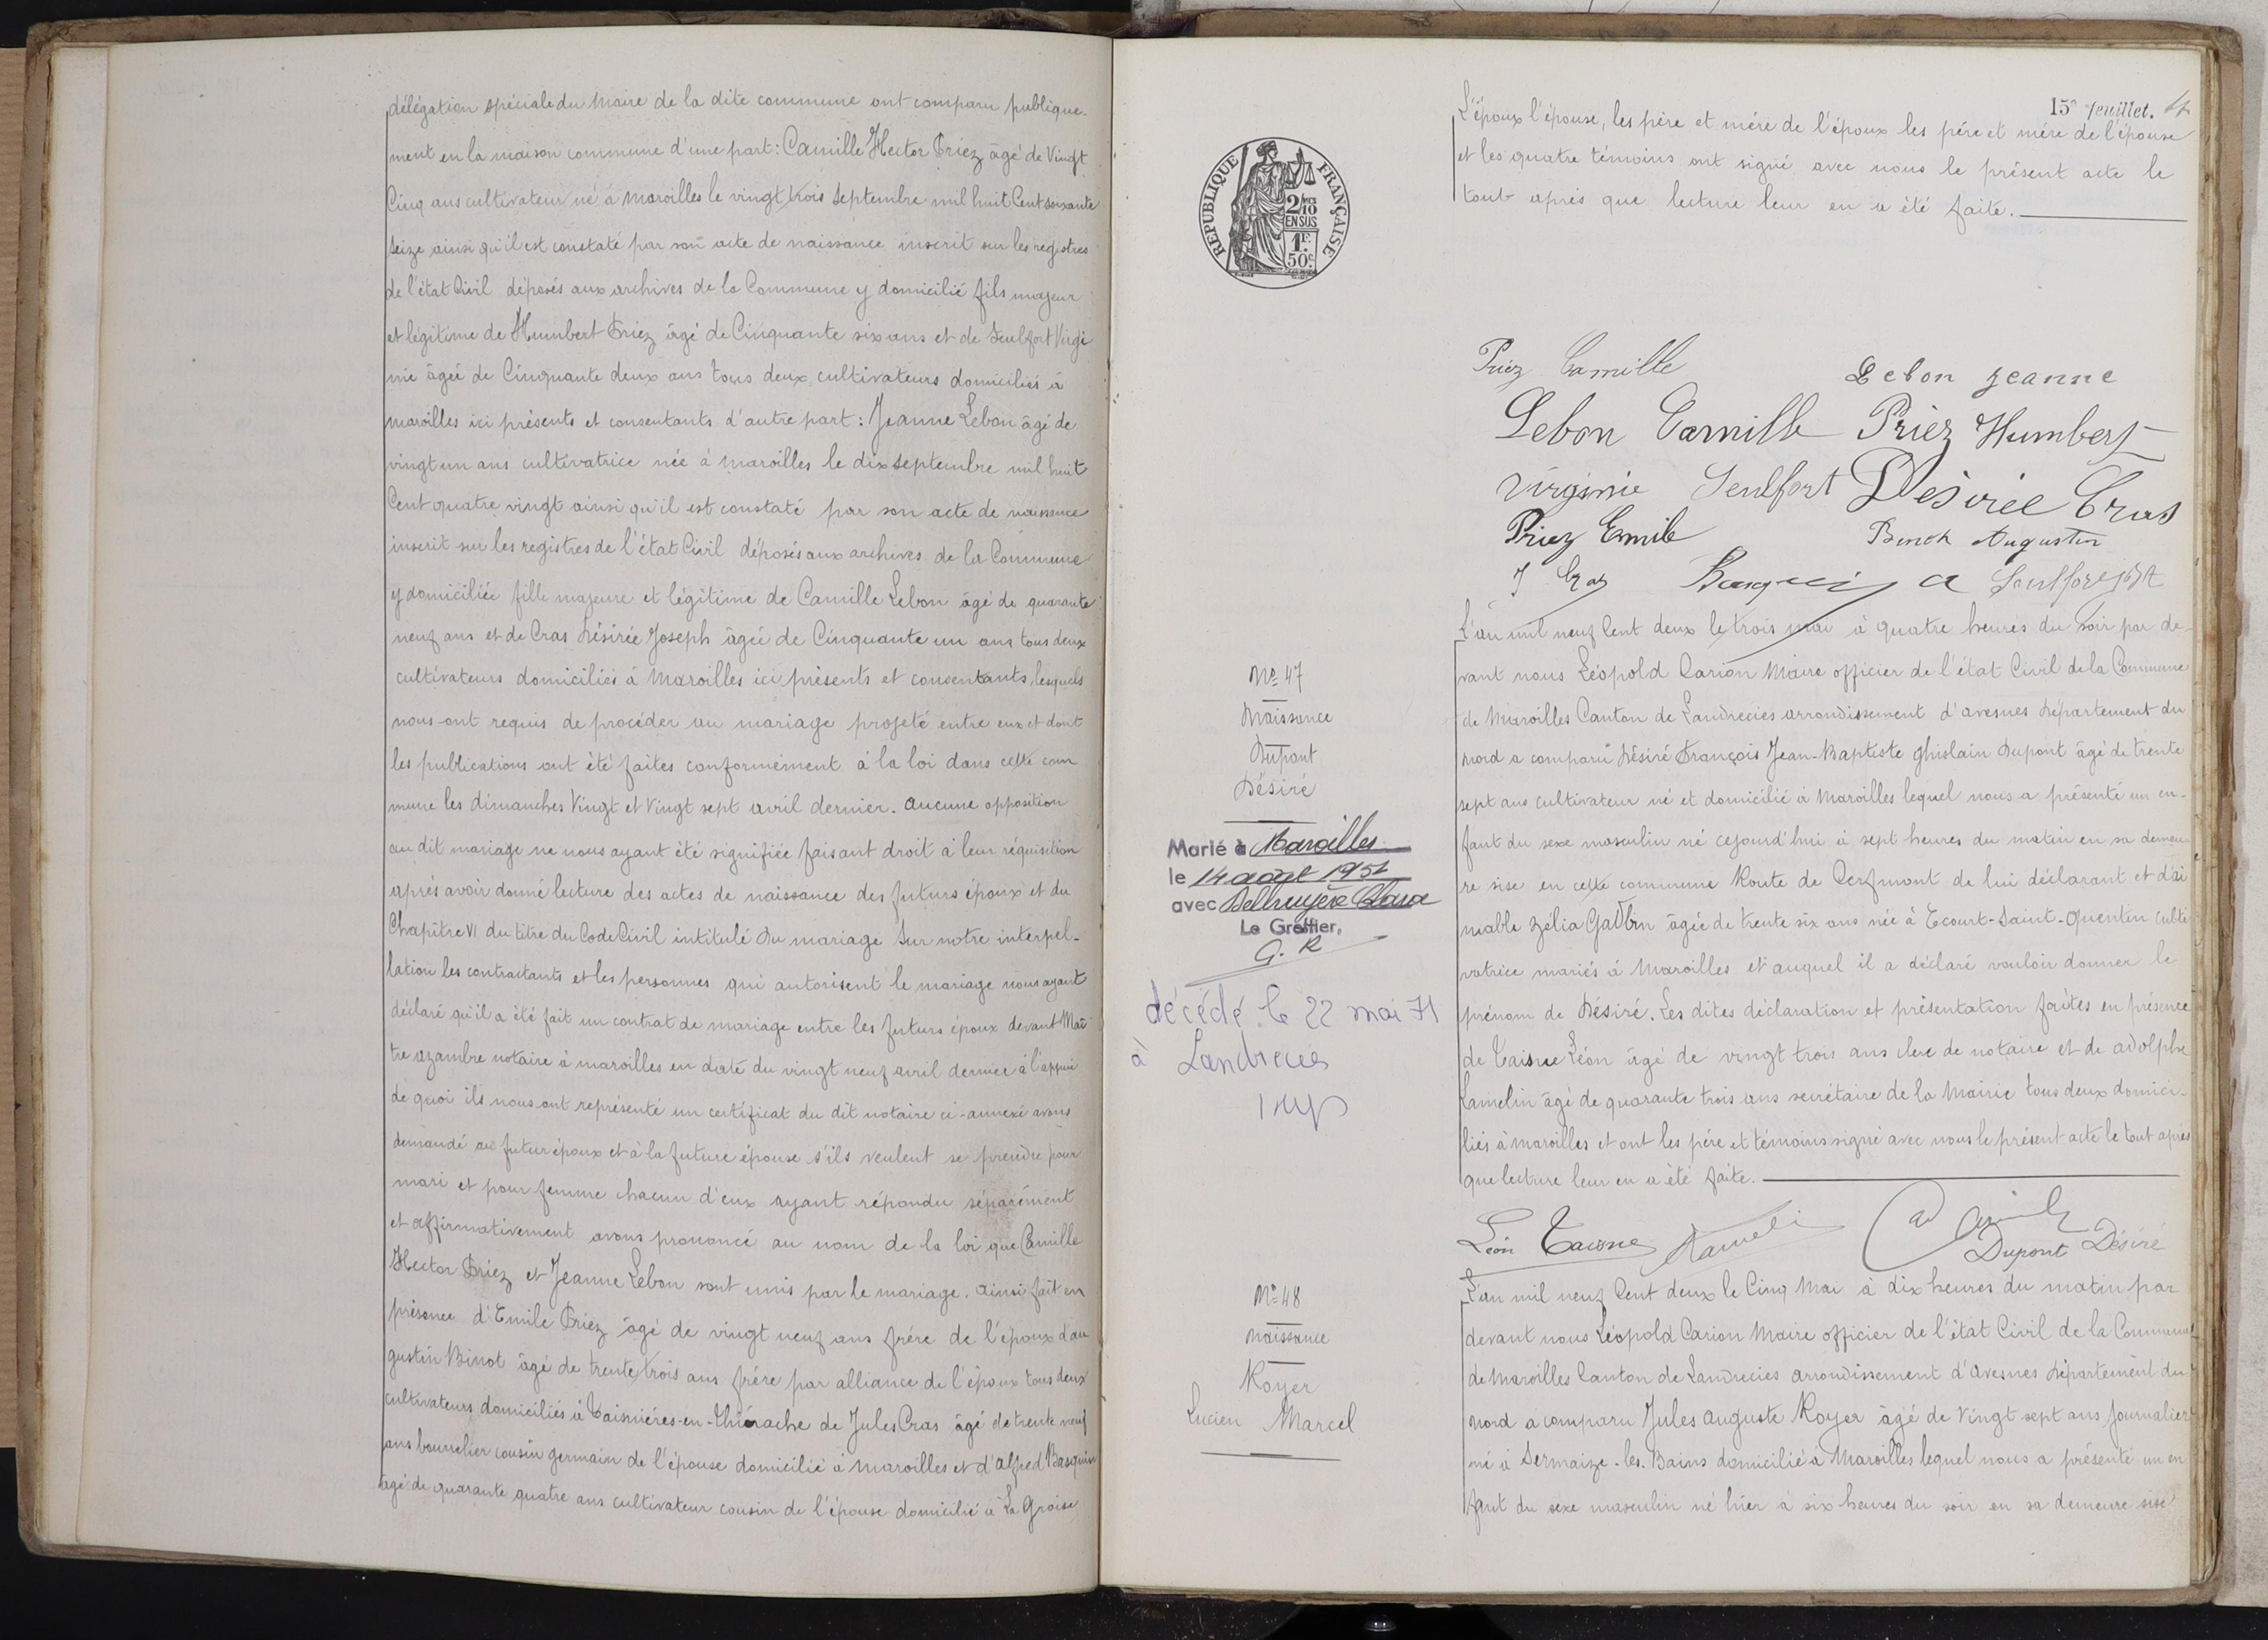 délégation spéciale du Maire de la dite commune ont comparu publique-
ment en la maison commune d'une part : Camille Hector Priez âgé de Vingt
Cinq ans cultivateur né à Maroilles le vingt trois Septembre mil huit Cent soixante
seize ainsi qu'il est constaté par son acte de naissance inscrit sur les registres
de l'état Civil déposés aux archives de la Commune y domicilié fils majeur
et légitime de Humbert Priez âgé de Cinquante six ans et de Seulfort Virgi
nie âgée de Cinquante deux ans tous deux cultivateurs domiciliés à
maroilles ici présents et consentants d'autre part : Jeanne Lebon âgé de
vingt un ans cultivatrice née à maroilles le dix septembre mil huit
Cent quatre vingt ainsi qu'il est constaté par son acte de naissance
inscrit sur les registres de l'état Civil déposés aux archives de la Commune
y domiciliée fille majeure et légitime de Camille Lebon âgé de quarante
neuf ans et de Cras Désirée Joseph âgée de Cinquante un ans tous deux
cultivateurs domiciliés à Maroilles ici présents et consentants, lesquels
nous ont requis de procéder au mariage projeté entre eux et dont
les publications ont été faites conformément à la loi dans cette com
mune les dimanches Vingt et Vingt sept avril dernier. Aucune opposition
au dit mariage ne nous ayant été signifiée faisant droit à leur réquisition
après avoir donné lecture des actes de naissance des futurs époux et du
Chapître VI du titre du Code Civil intitulé Du mariage Sur notre interpel-
lation les contractants et les personnes qui autorisent le mariage nous ayant
déclaré qu'il a été fait un contrat de mariage entre les futurs époux devant Maî
tre Azambre notaire à maroilles en date du vingt neuf avril dernier à l'appui
de quoi ils nous ont représenté un certificat du dit notaire ci-annexé avons
demandé au futur époux et à la future épouse s'ils veulent se prendre pour
mari et pour femme chacun d'eux ayant répondu séparément
et affirmativement avons prononcé au nom de la loi que Camille
Hector Priez et Jeanne Lebon sont unis par le mariage. Ainsi fait en
présence d'Emile Priez âgé de vingt neuf ans frère de l'époux d'au
gustin Binot âgé de trente trois ans frère par alliance de l'époux tous deux
cultivateurs domiciliés à Taisnières-en-Thiérache de Jules Cras âgé de trente neuf
ans bourrelier cousin germain de l'épouse domicilié à Maroilles et d'Alfred Basquin
âgé de quarante quatre ans cultivateur cousin de l'épouse domicilié à La Groise
15e feuillet.
L'époux l'épouse, les père et mère de l'époux les père et mère de l'épouse
et les quatre témoins ont signé avec nous le présent acte le
tout après que lecture leur en a été faite.
RÉPUBLIQUE FRANÇAISE
2/10
EN SUS
1F.
50c
Priez Camille Lebon Jeanne
Lebon Camille Priez Humbert
Virginie Seulfort Désirée Cras
Priez Emile Binot Augustin
J Cras Basquin a
Nº 47
Naissance
Dupont
Désiré
Marié à Maroilles
le 14 août 1951
avec
Le Greffier,
G. R
décédé le 22 mai 71
à Landrecies
L'an mil neuf Cent deux le trois mai à quatre heures du soir par de-
vant nous Léopold Carion Maire officier de l'état Civil de la Commune
de Maroilles Canton de Landrecies arrondissement d'Avesnes Département du
Nord a comparu Désiré François Jean-Baptiste Ghislain Dupont âgé de trente
sept ans cultivateur né et domicilié à Maroilles lequel nous a présenté un en-
fant du sexe masculin né cejourd'hui à sept heures du matin en sa demeu
re sise en cette commune Route de Cerfmont de lui déclarant et d'Ai
mable Zélia âgée de trente six ans née à Ecourt-Saint-Quentin culti
vatrice mariés à Maroilles et auquel il a déclaré vouloir donner le
prénom de Désiré. Les dites déclaration et présentation faites en présence
de Taisne Léon âgé de vingt trois ans clerc de notaire et de Adolphe
Lamelin âgé de quarante trois ans secrétaire de la Mairie tous deux domici-
liés à maroilles et ont les père et témoins signé avec nous le présent acte le tout après
que lecture leur en a été faite.
Léon Taisne Dupont Désiré
Nº 48
naissance
Royer
Lucien Marcel
L'an mil neuf Cent deux le Cinq Mai à dix heures du matin par
devant nous Léopold Carion Maire officier de l'état Civil de la Commune
de Maroilles Canton de Landrecies arrondissement d'Avesnes Département du
Nord a comparu Jules Auguste Royer âgé de Vingt sept ans Journalier
né à Sermaize-les-Bains domicilié à Maroilles lequel nous a présenté un en
fant du sexe masculin né hier à six heures du soir en sa demeure sise